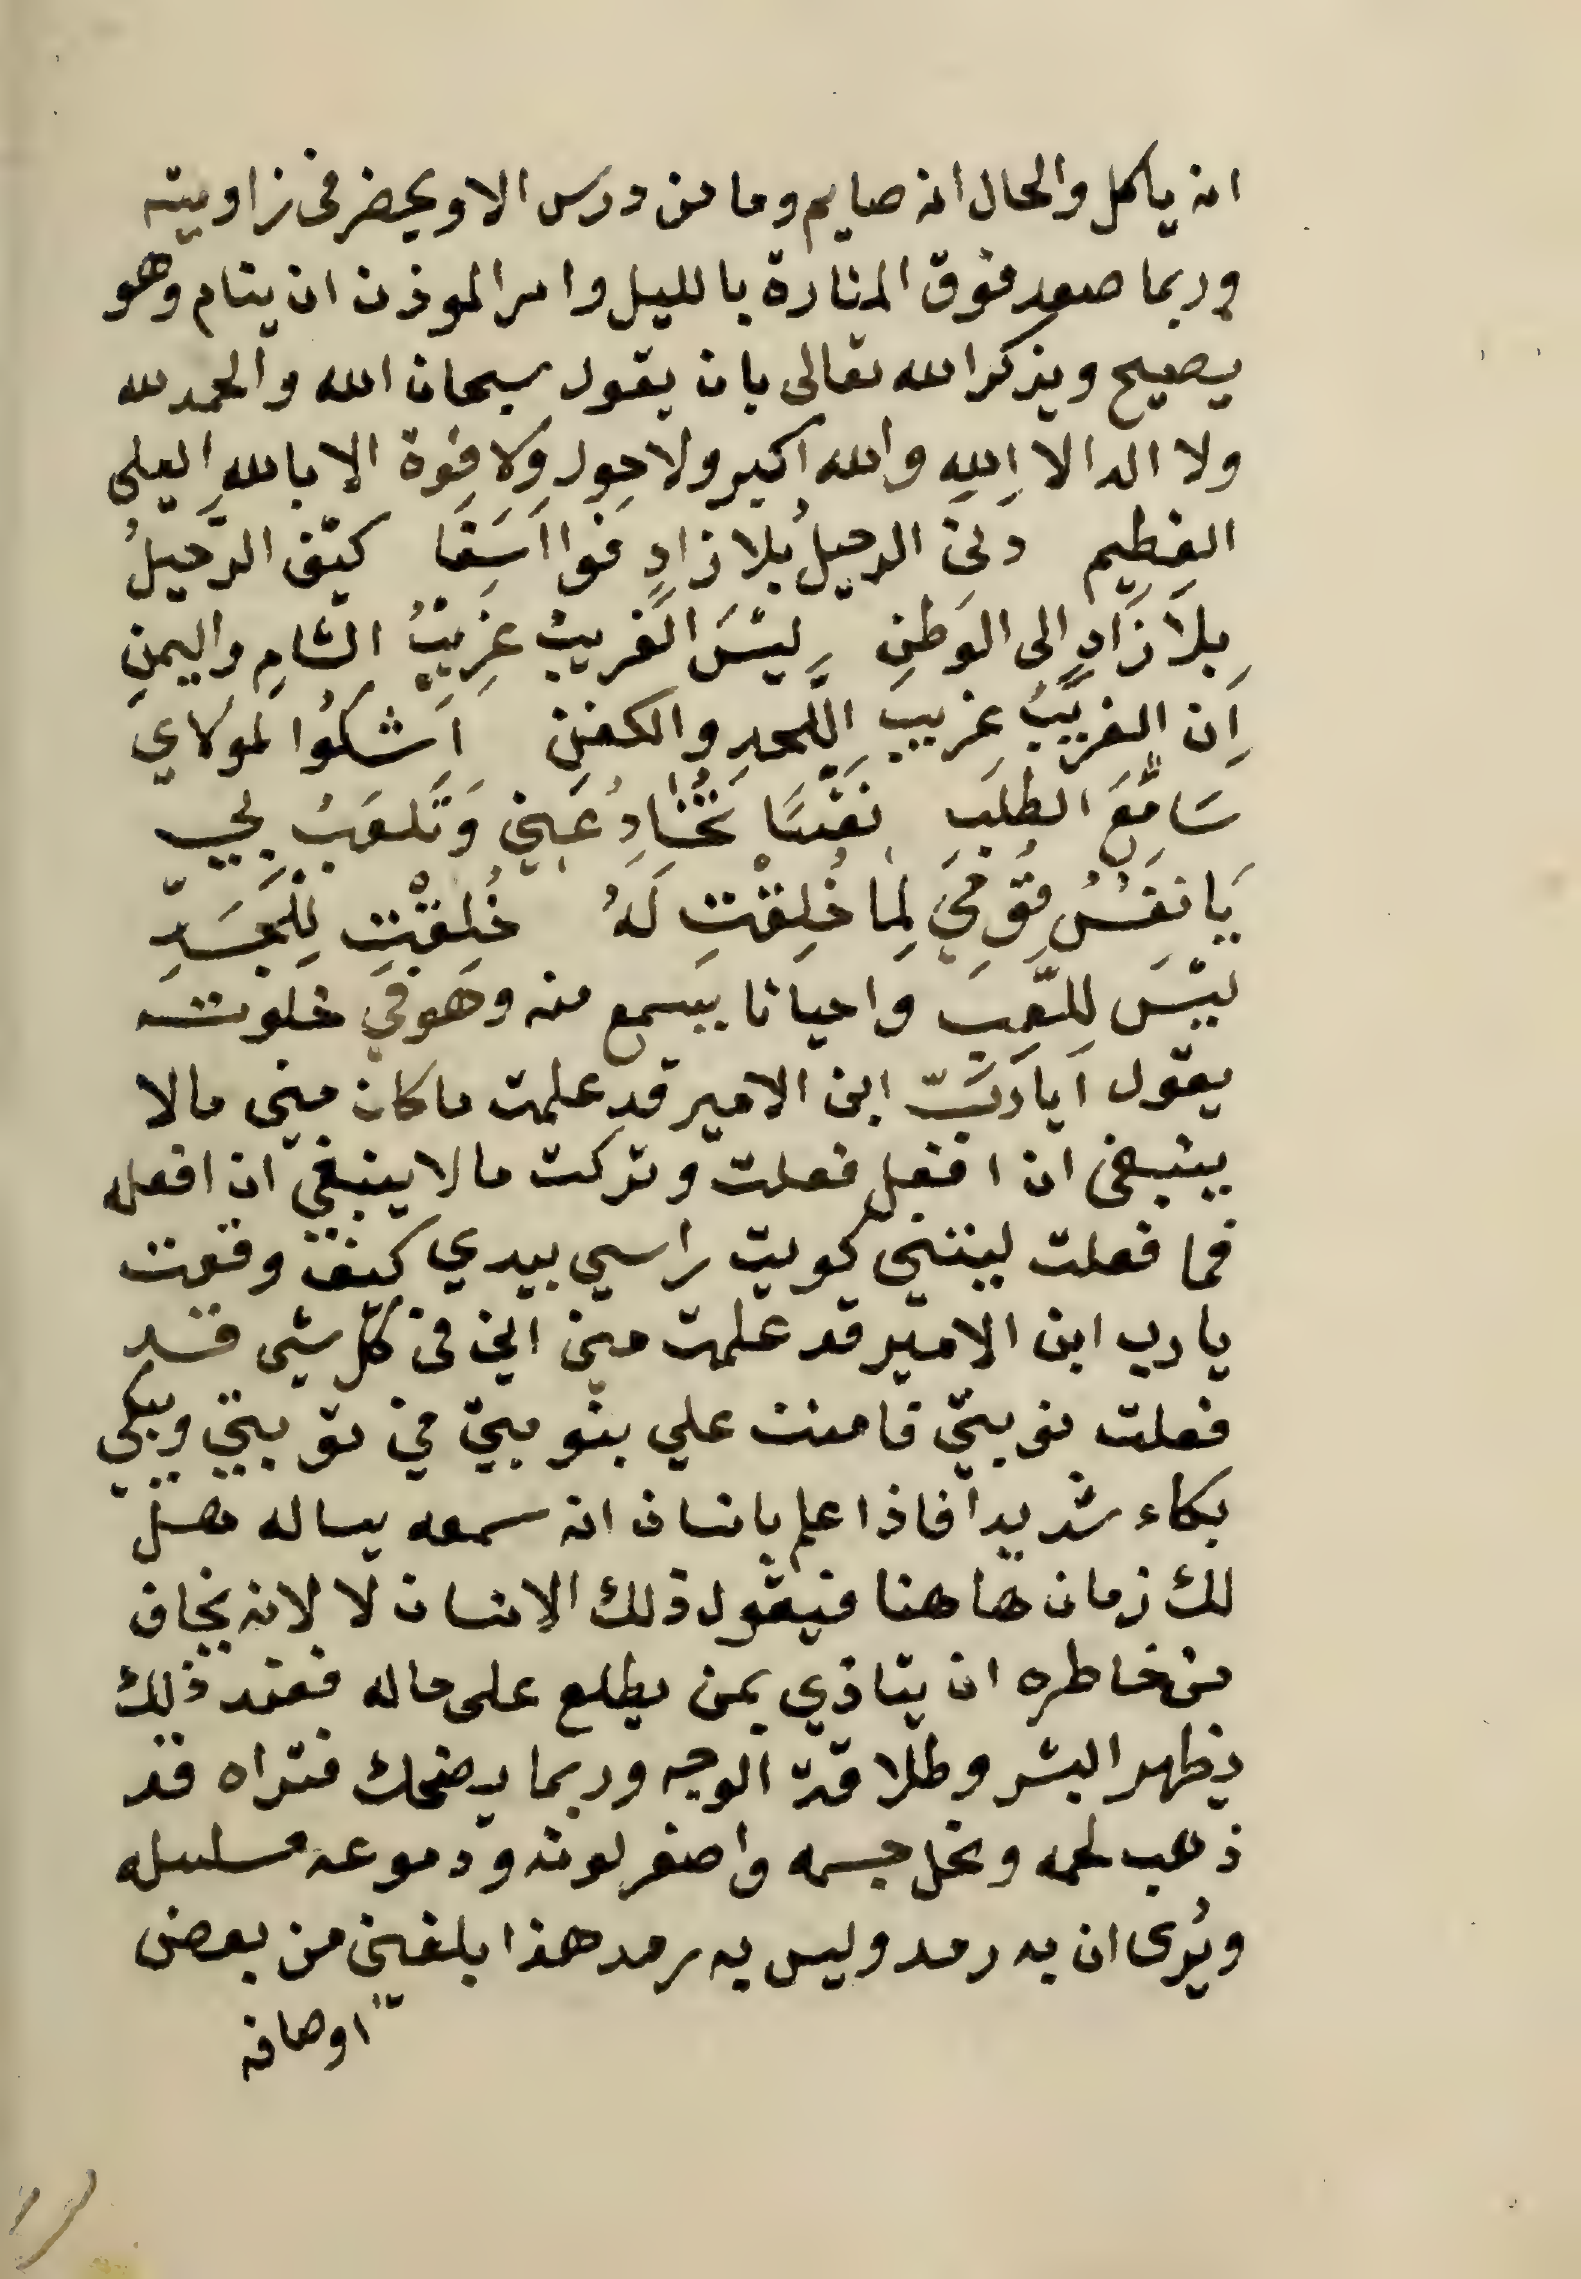 انه ياكل والحال انه صايم وما من درس الا ويحضر في زاويته
وربما صعد فوق المنارة بالليل وامر الموذن ان ينام وهو
يصيح ويذكر الله تعالى بان يقول سبحان الله والحمد لله
ولا اله الا الله والله اكبر ولا حول ولا قوة الا بالله العلى
العظيم دنى الرحيلُ بلا زادٍ فوا اسَفَا كيْف الرَّحيلُ
بِلَا زَادٍ الى الوَطنِ لَيْسَ الغريبُ غرِيبُ الشامِ واليمنِ
اِن الغَريبُ غريب اللَّحدِ والكفنِ اَشكُوا لمولاي
سَامِعَ الطلَبِ نفْسًا تُخَادِعُني وَتَلعَبُ بي
يَا نفْسُ قوْمي لِمَا خُلِقْتِ لَهُ خُلِقْتِ لِلْجَدِّ
ليْسَ لِلَّعِبِ واحيانا يسمع منه وهو في خلوته
يقول ايا رَبّ ابن الامير قد علمت ما كان مني مالا
ينبغى ان افعل فعلت وتركت ما لا ينبغي ان افعله
فما فعلت ليتني كويت راسي بيدي كيف وقعت
يا رب ابن الامير قد علمت مني اني في كل شي قد
فعلت توبتي فامنت علي بتوبتي في توبتي ويبكي
بكاء شديدا فاذا علم بانسان انه سمعه يساله هل
لك زمان هاهنا فيقول ذلك الانسان لا لانه يخاف
من خاطره ان يتاذي بمن يطلع على حاله فعند ذلك
يظهر البشر وطلاقة الوجه وربما يضحك فتراه قد
ذهب لحمه ونحل جسمه واصفر لونه ودموعه مسلسله
ويُرى ان به رمد وليس به رمد هذا بلغني من بعض
اوصافه